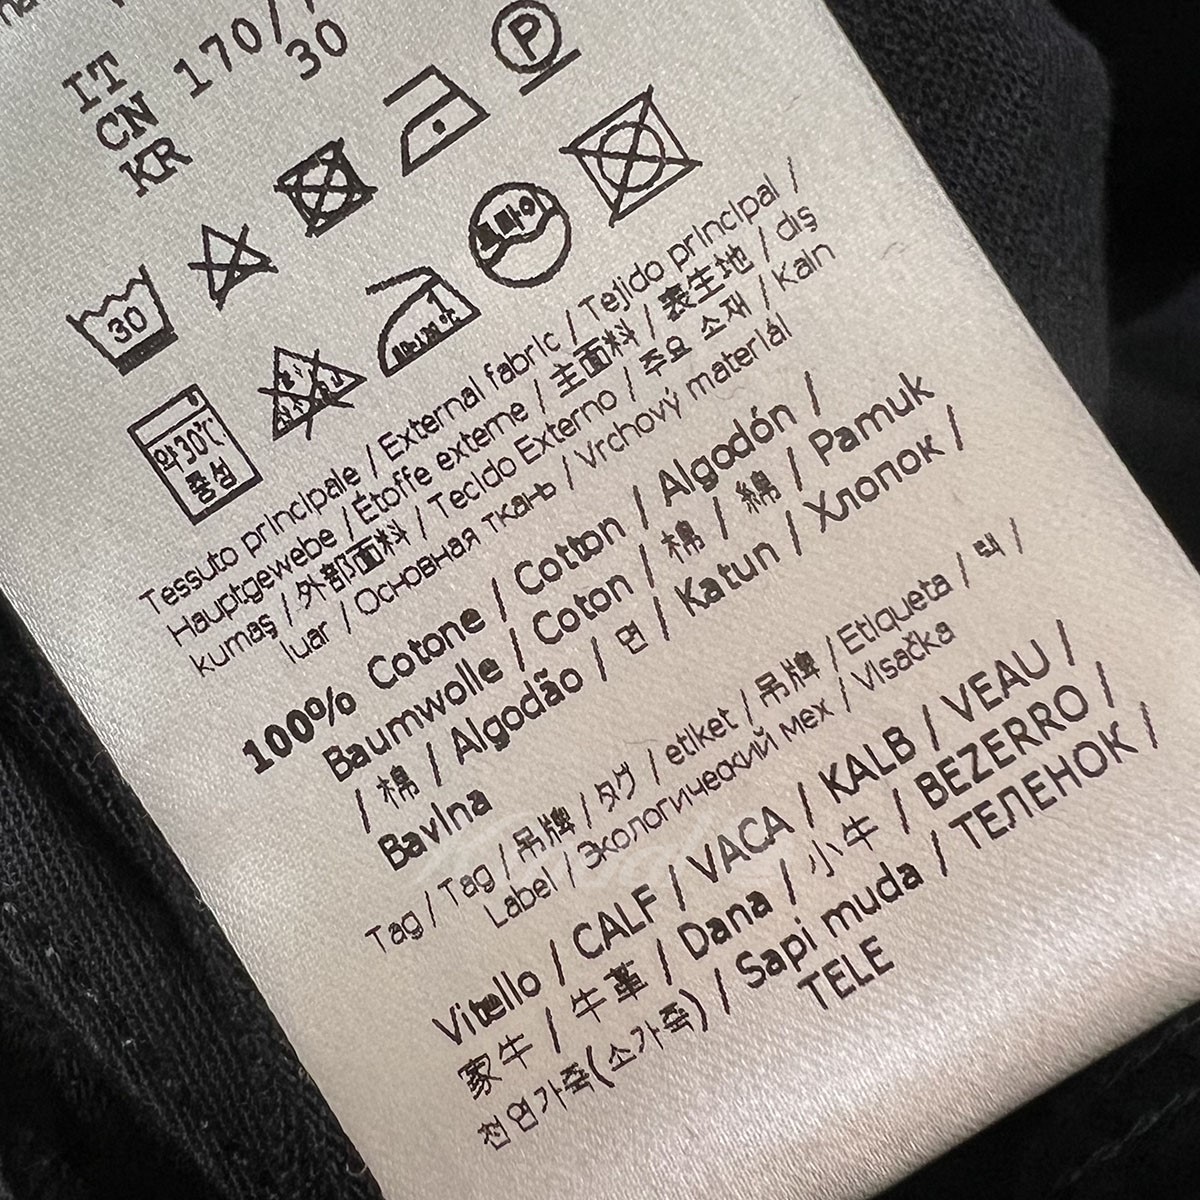 IT
CN 170/
KR 30
P
30
드라이
약30℃
중성
Tessuto principale / External fabric / Tejido principal /
Hauptgewebe / Étoffe externe / 主面料 / 表生地 / dış
kumaş / 外部面料 / Tecido Externo / 주요 소재 / Kain
luar / Основная ткань / Vrchový materiál
100% Cotone / Cotton / Algodón /
Baumwolle / Coton / 棉 / 綿 / Pamuk
/ 棉 / Algodão / 면 / Katun / Хлопок /
Bavlna
Tag / Tag / 吊牌 / タグ / etiket / 吊牌 / Etiqueta / 택 /
Label / Экологический мех / Visačka
Vitello / CALF / VACA / KALB / VEAU /
家牛 / 牛革 / Dana / 小牛 / BEZERRO /
천연가죽(소가죽) / Sapi muda / ТЕЛЕНОК /
TELE